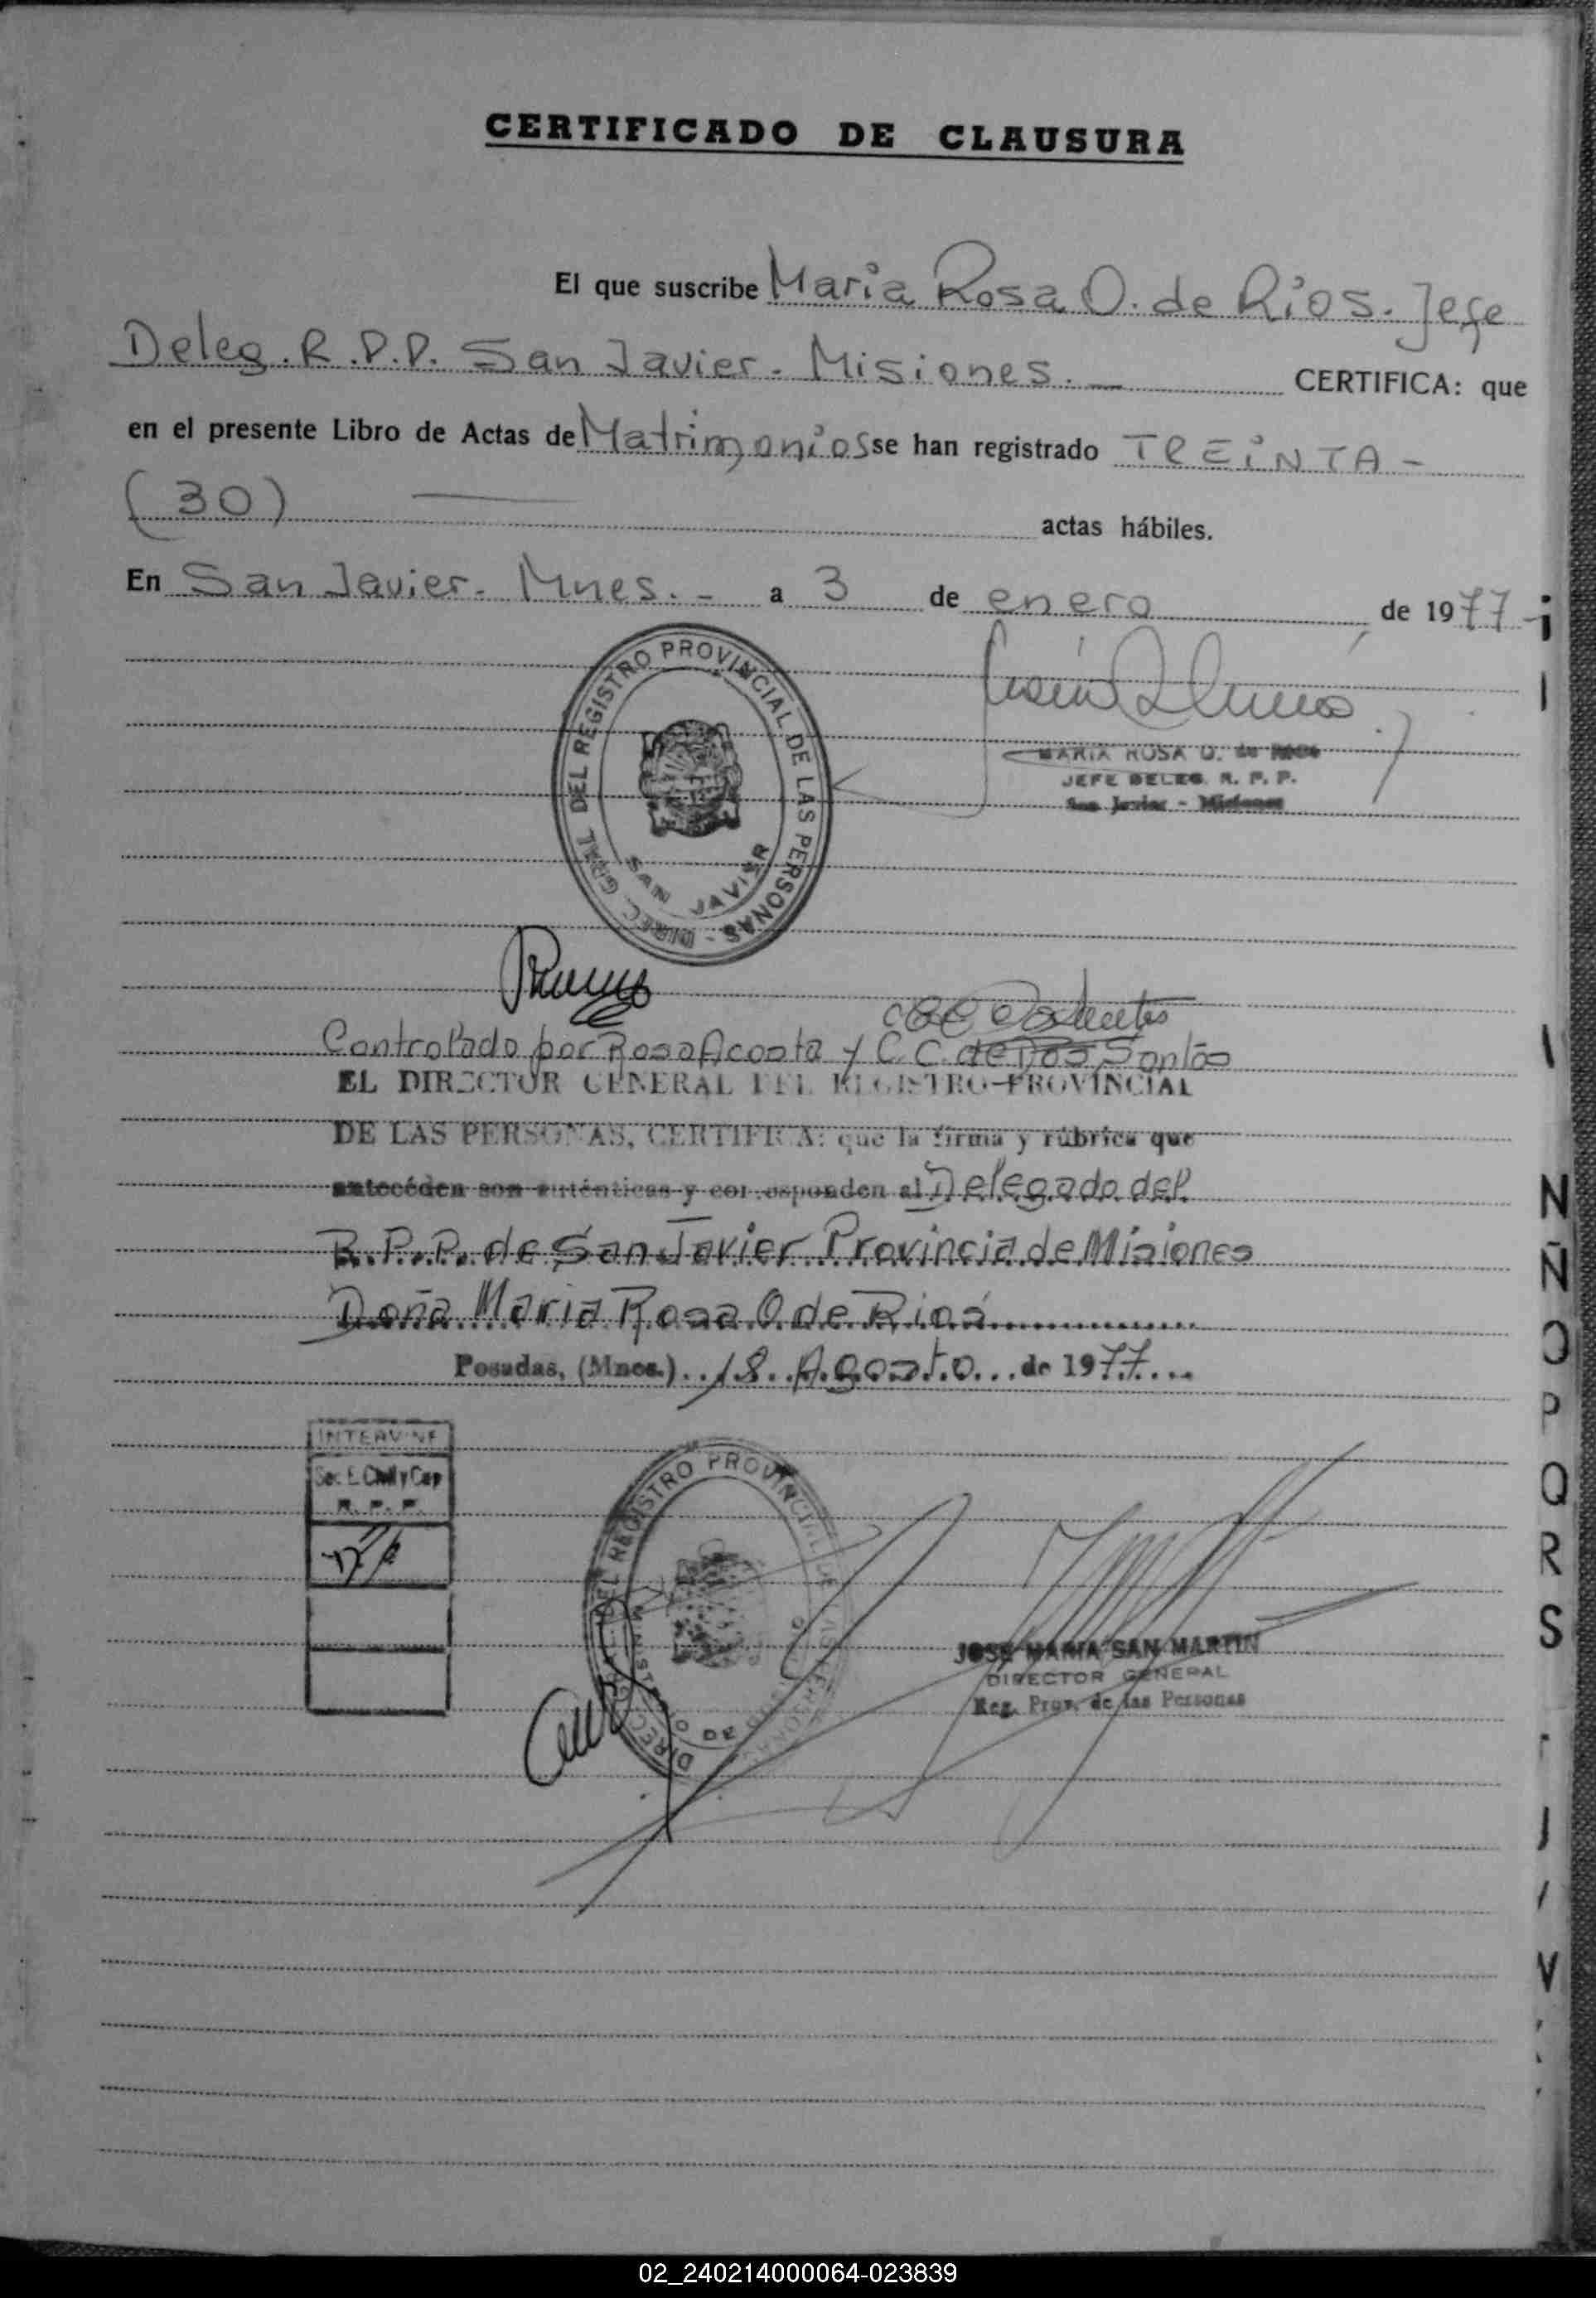 CERTIFICADO DE CLAUSURA
El que suscribe Maria Rosa O. de Rios. Jefe
Deleg. R.P.P. San Javier. Misiones. — CERTIFICA: que
en el presente Libro de Actas de Matrimonios se han registrado TREINTA -
(30) — actas hábiles.
En San Javier. Mnes. - a 3 de enero de 1977-
DIREC. GRAL. DEL REGISTRO PROVINCIAL DE LAS PERSONAS -
SAN JAVIER
MARIA ROSA O. de RIOS
JEFE DELEG. R. P. P.
San Javier - Misiones
Controlado por Rosa Acosta y C.C. de Dos Santos
EL DIRECTOR GENERAL DEL REGISTRO PROVINCIAL
DE LAS PERSONAS, CERTIFICA: que la firma y rúbrica que
antecéden son auténticas y corresponden al Delegado del
R.P.P. de San Javier Provincia de Misiones
Doña Maria Rosa O de Rios
Posadas, (Mnes.) 18 Agosto de 1977
INTERVINE
Sec. E. Civil y Cap
R. P. P.
DIREC. GRAL. DEL REGISTRO PROVINCIAL DE LAS PERSONAS
MINISTERIO DE
JOSE MARIA SAN MARTIN
DIRECTOR GENERAL
Reg. Prov. de las Personas
N
Ñ
O
P
Q
R
S
V
02_240214000064-023839